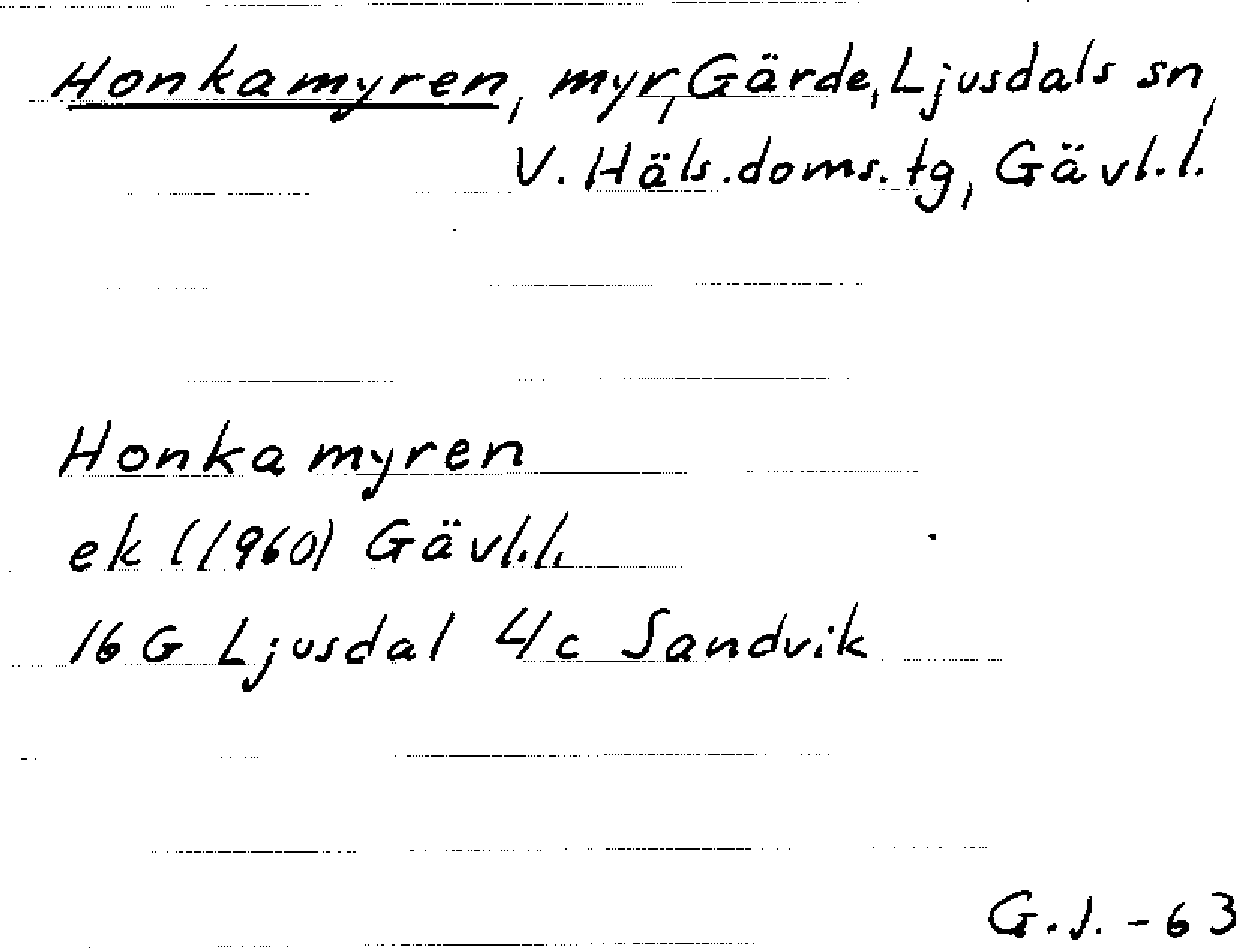 Honkamyren, myr, Gärde, Ljusdals sn,
V. Häls. doms. tg, Gävl.l.
Honkamyren
ek (1960) Gävl.l.
16 G Ljusdal 4c Sandvik
G.J. - 63